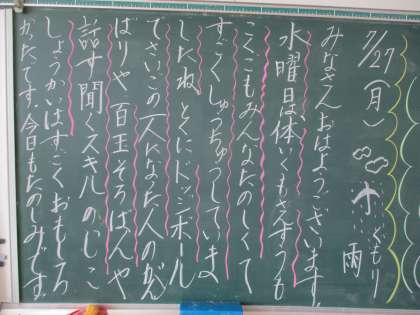 7/27(月) くもり
雨
みなさんおはようございます。
水曜日は体いくもさんすうも
こくごもみんなたのしくて
すごくしゅうちゅうしていま
したね。とくにドッジボール
でさいごの一人になった人のがん
ばりや百玉そろばんや
話す聞くスキルのじこ
しょうかいはすごくおもしろ
かったです。今日もたのしみです。